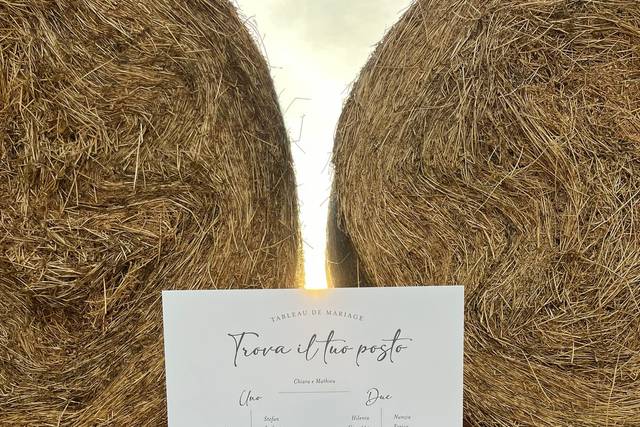 TABLEAU DE MARIAGE
Trova il tuo posto
Chiara e Mathieu
Uno Due
Stefan Hilenia Nunzia